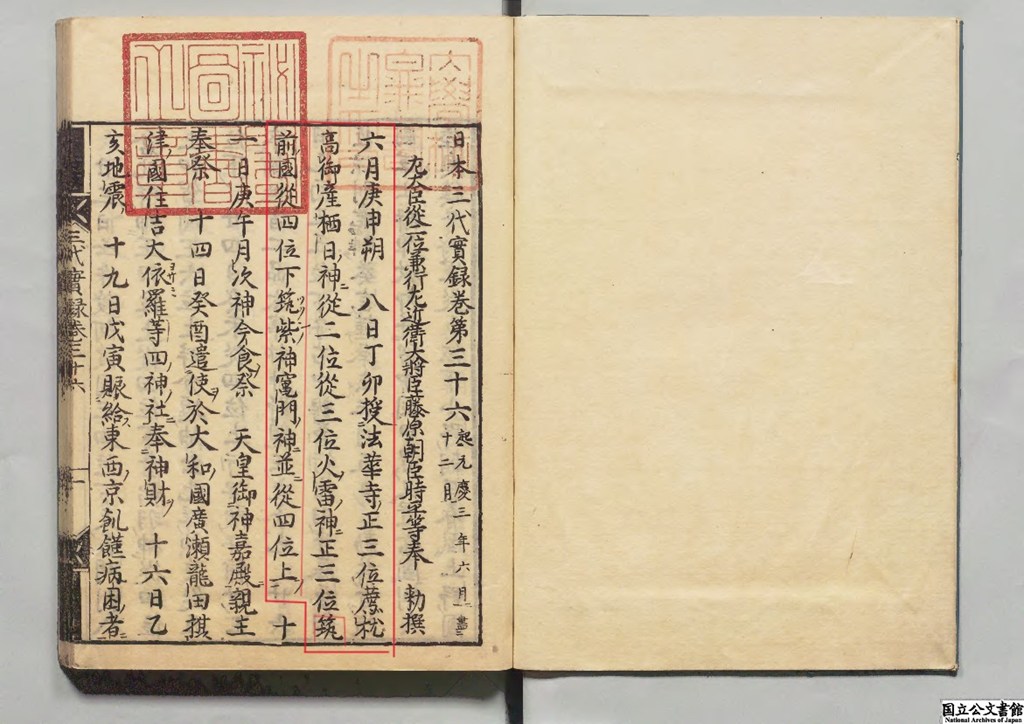 日本三代實録巻第三十六 起元慶三年六月盡
十二月
左大臣從二位兼行左近衞大將臣藤原朝臣時平等奉 勅撰
六月庚申朔 八日丁卯授法華寺正三位薦枕
高御産栖日神從二位從三位火雷神正三位筑
前國從四位下筑紫神竃門神並從四位上 十
一日庚午月次神今食祭 天皇御神嘉殿親主
奉祭 十四日癸酉遣使於大和國廣瀬龍田摂
津國住吉大依羅等四神社奉神財 十六日乙
亥地震 十九日戊寅賑給東西京飢饉病困者
三代實録巻三十六
一
国立公文書館
National Archives of Japan